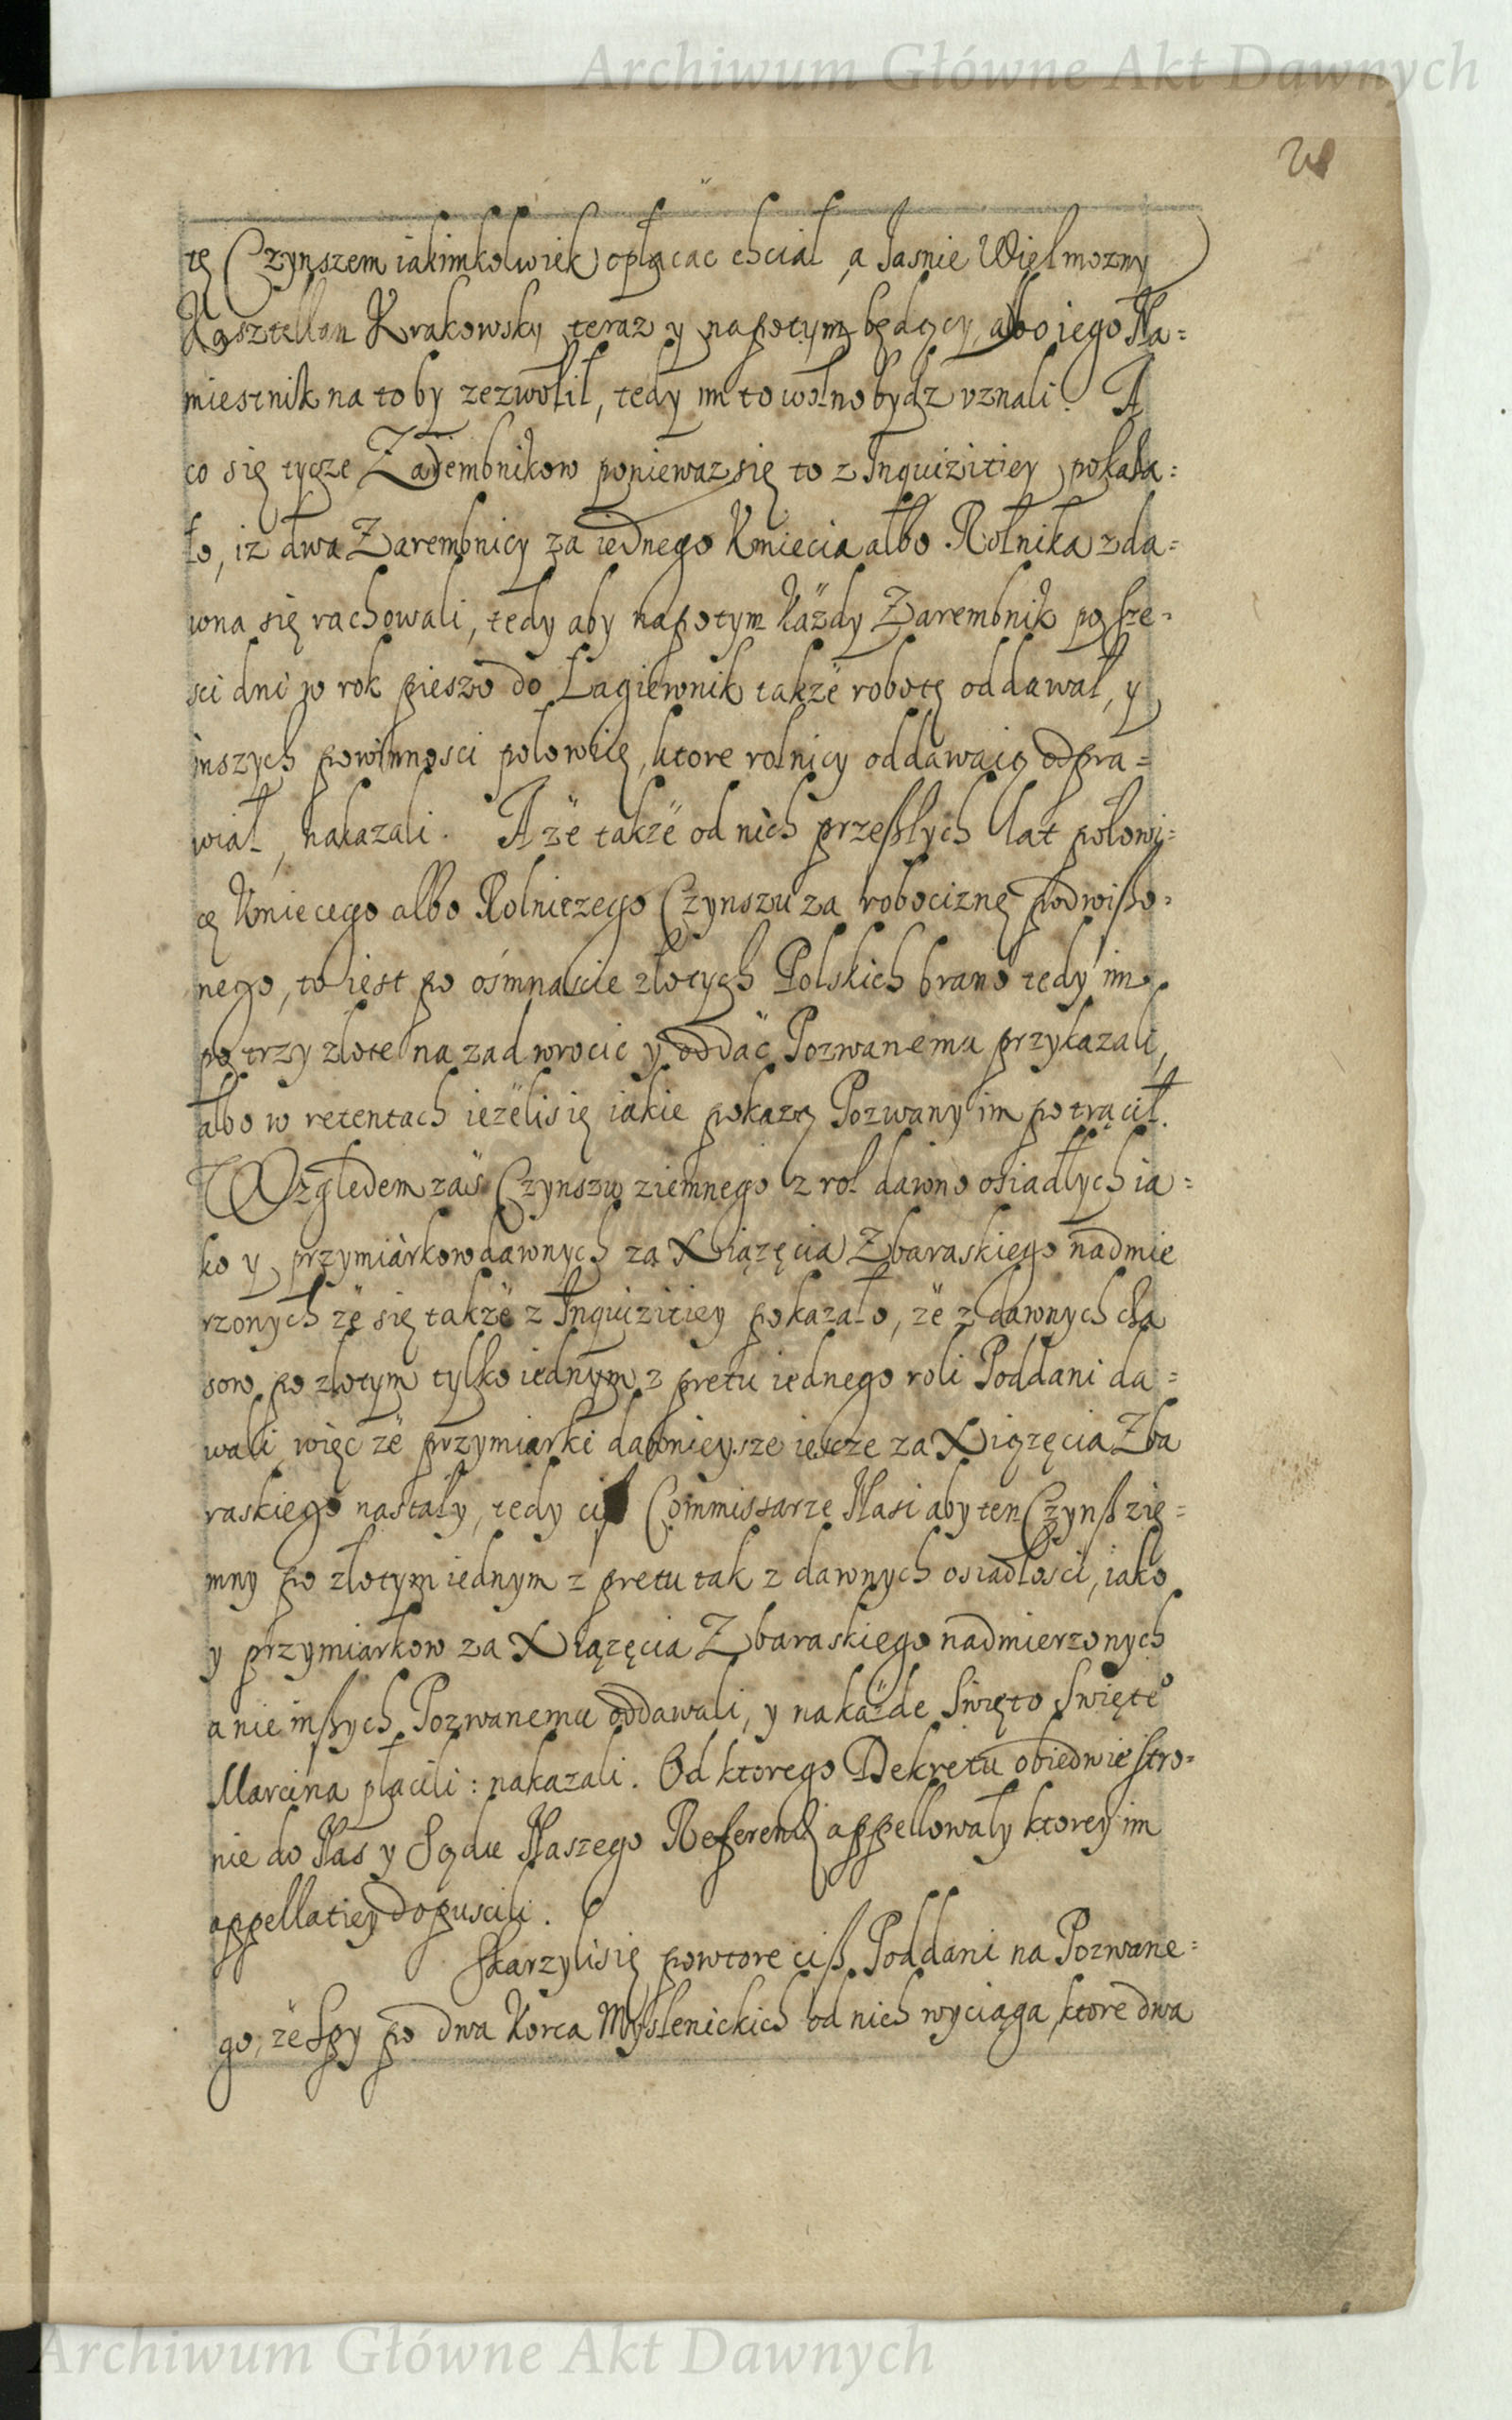 Archiwum Główne Akt Dawnych
tę Czynszem iakimkolwiek opłacac chciał, a Jasnie Wielmozny
Kasztellan Krakowsky teraz y napotym będący, albo iego Na=
miestnik na to by zezwolił, tedy im to wolno bydz vznali. A
co się tycze Zarembnikow poniewaz się to z Inquizitiey pokaza=
ło, iz dwa Zarembnicy za iednego Kmiecia albo Rolnika zda=
wna się rachowali, tedy aby napotym każdy Zarembnik po sze=
sci dni w rok pieszo do Łagiewnik także robotę oddawał, y
inszych powinnosci połowicę, ktore rolnicy oddawaią odpra=
wiał, nakazali. A że także od nich przeszłych lat połowi=
cę Kmiecego albo Rolniczego Czynszu za robociznę podwiszo=
nego, to iest po ośmnascie złotych Polskich brano tedy im
po trzy złote nazad wrocic y oddać Pozwanemu przykazali,
albo w retentach ieżeli się iakie pokażą Pozwany im potrącił.
Względem zaś Czynszu ziemnego z rol dawno osiadłych ia=
ko y przymiarkow dawnych za Xiążęcia Zbaraskiego nadmie
rzonych że się także z Inquizitiey pokazało, że z dawnych cza
sow po złotym tylko iednym z prętu iednego roli Poddani da=
wali, więc że przymiarki dawnieysze iescze za Xiążęcia Zba
raskiego nastały, tedy ciż Commissarze Nasi aby ten Czynsz zie=
mny po złotym iednym z prętu tak z dawnych osiadłosci, iako
y przymiarkow za Xiążęcia Zbaraskiego nadmierzonych
a nie inszych Pozwanemu oddawali, y na każde Swięto Swięte°
Marcina płacili: nakazali. Od ktorego Dekretu obiedwie stro=
nie do Nas y Sądu Naszego Referend appellowały ktorey im
appellatiey dopuscili.
Skarzyli się powtore cisz Poddani na Pozwane=
go, że Spy po dwa Korca Myslenickich od nich wyciąga, ktore dwa
Archiwum Główne Akt Dawnych